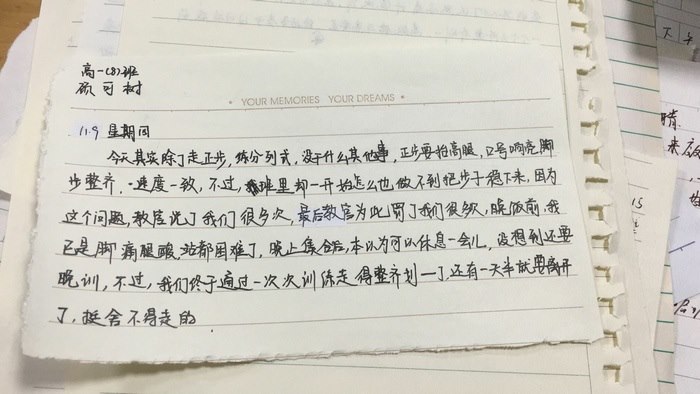 高一(8)班
顾可树
YOUR MEMORIES YOUR DREAMS
11.9 星期
今天其实除了走正步，练分列式，没干什么其他事，正步要抬高腿，口号响亮脚
步整齐，速度一致，不过，班里却一开始怎么也做不到把步子稳下来，因为
这个问题，教官说了我们很多次，最后教官为此罚了我们很多次，晚饭前，我
已是脚痛腿酸，站都困难了，晚上集合后，本以为可以休息一会儿，没想到还要
晚训，不过，我们终于通过一次次训练走得整齐划一了，还有一天半就要离开
了，挺舍不得走的.
下午
15